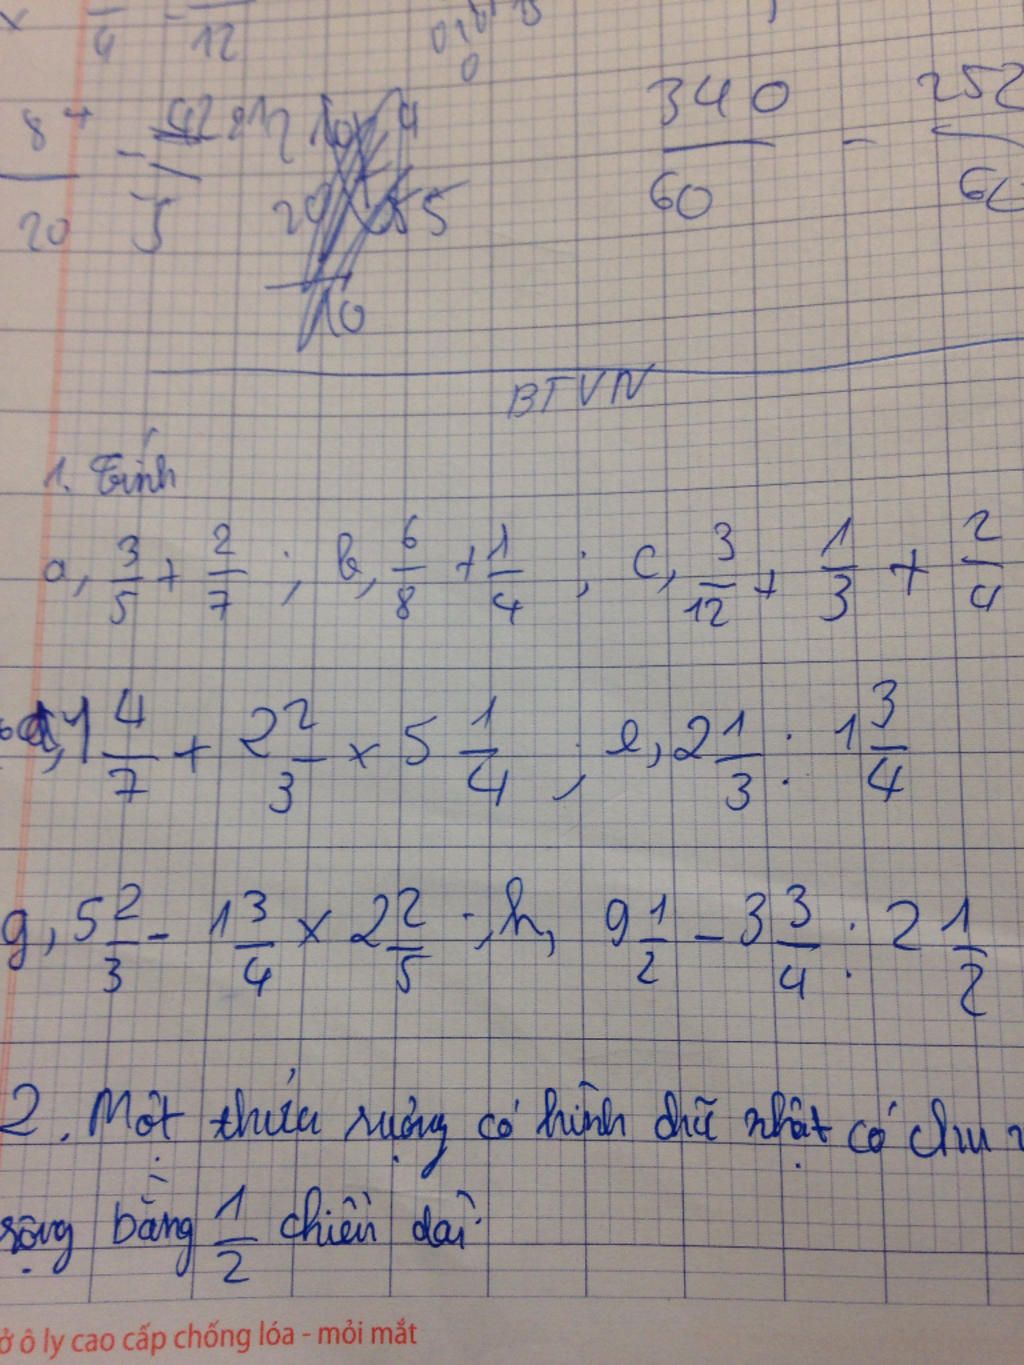 4 12
8 42
20 5
340/60 - 252
BTVN
1. Tính
a, 3/5 + 2/7 ; b, 6/8 + 1/4 ; c, 3/12 + 1/3 + 2/4
d, 1 4/7 + 2 2/3 x 5 1/4 ; e, 2 1/3 : 1 3/4
g, 5 2/3 - 1 3/4 x 2 2/5 ; h, 9 1/2 - 3 3/4 : 2 1/2
2. Một thửa ruộng có hình chữ nhật có chu
rộng bằng 1/2 chiều dài
ở ô ly cao cấp chống lóa - mỏi mắt